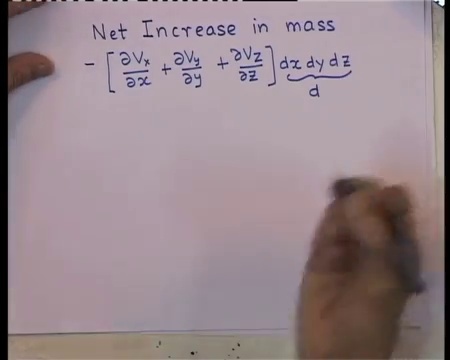 Net Increase in mass
- [ ∂Vx/∂x + ∂Vy/∂y + ∂Vz/∂z ] dx dy dz
d